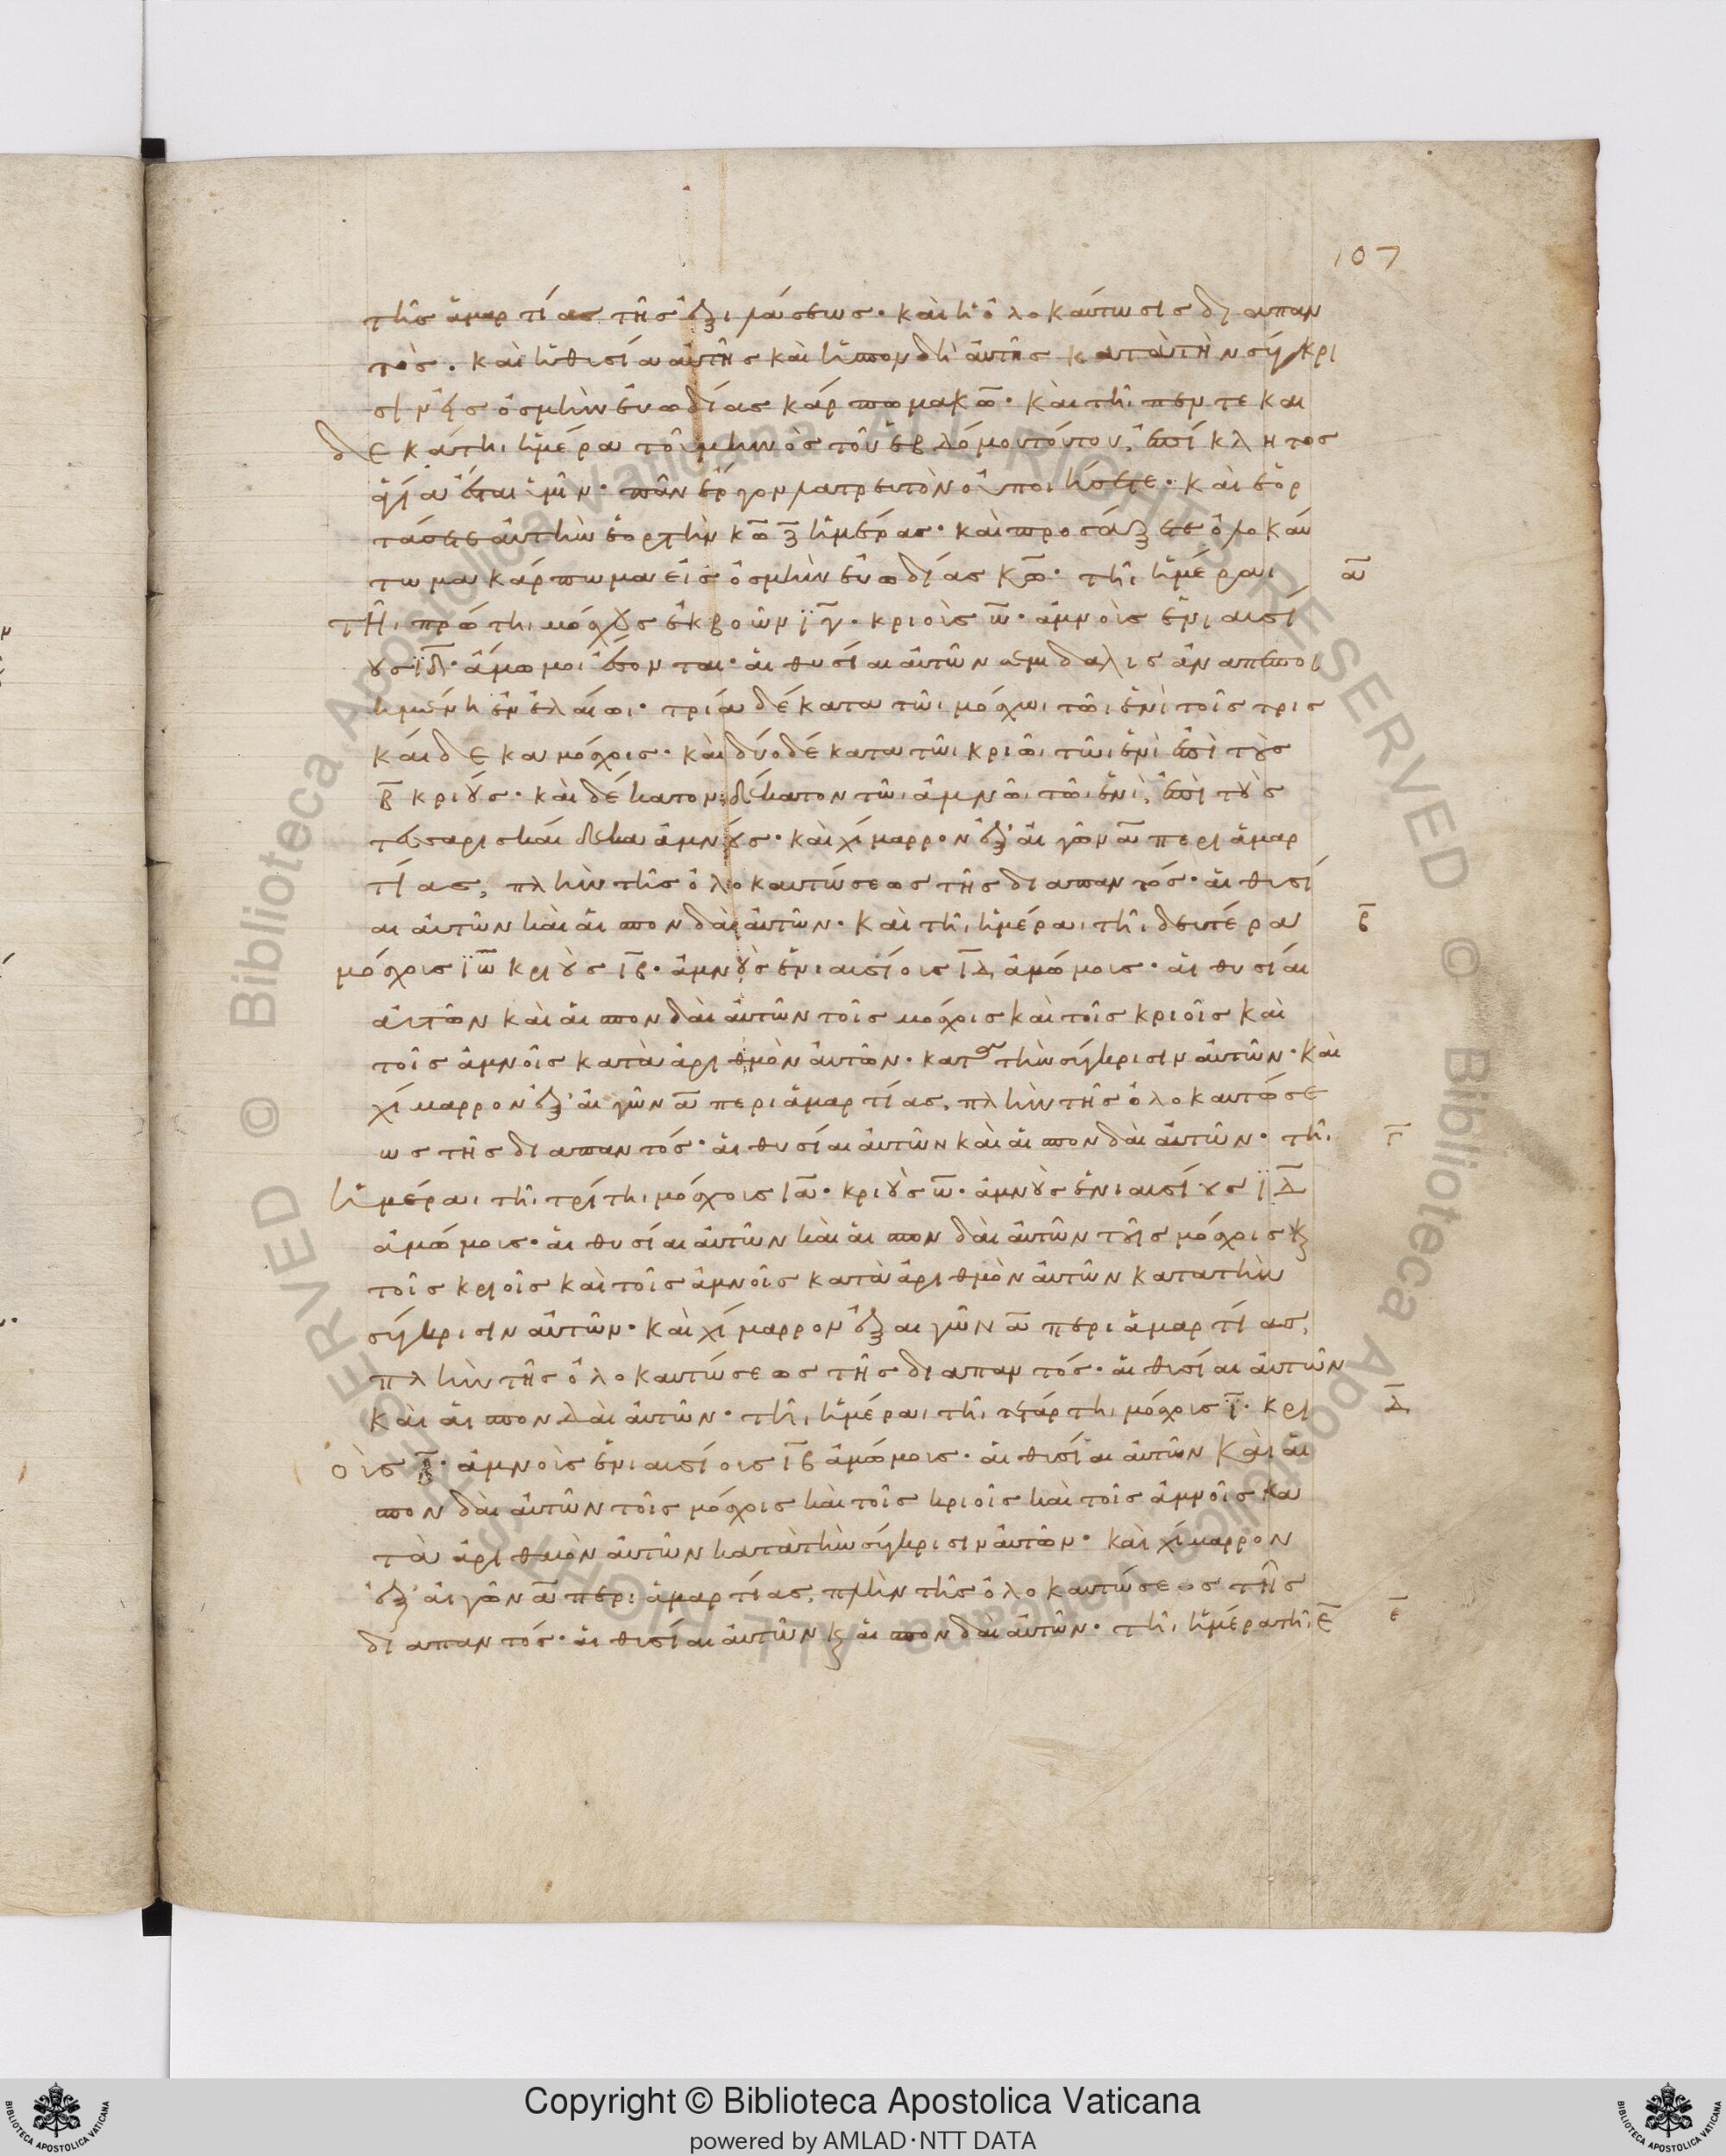 107
τῆς ἁμαρτίας τῆς ἐξιλάσεως· καὶ ἡ ὁλοκαύτωσις διαπαν
τός. καὶ ἡ θυσία αὐτῆς καὶ ἡ σπονδὴ αὐτῆς κατὰ τὴν σύγκρι
σιν εἰς ὀσμὴν εὐωδίας κάρπωμα κω̅· καὶ τῆι πεντεκαι
δεκάτηι ἡμέρα τοῦ μηνὸς τοῦ ἑβδόμου τούτου, ἐπίκλητος
ἁγία ἔσται ὑμῖν· πᾶν ἔργον λατρευτὸν οὐ ποιήσετε· καὶ ἑορ
τάσετε αὐτὴν ἑορτὴν κω̅ ζ̅ ἡμέρας· καὶ προσάξετε ὁλοκαύ
τωμα κάρπωμα εἰς ὀσμὴν εὐωδίας κω̅· τῆι ἡμέραι
α̅
τῆι πρώτηι μόσχους ἐκ βοῶν ιγ̅· κριοὺς β̅· ἀμνοὺς ἐνιαυσί
ους ιδ̅· ἄμωμοι ἔσονται· αἱ θυσίαι αὐτῶν σεμίδαλις ἀναπεποι
ημένη ἐν ἐλαίωι· τρία δέκατα τῶι μόσχωι τῶι ἑνὶ τοῖς τρισ
καίδεκα μόσχοις· καὶ δύο δέκατα τῶι κριῶι τῶι ἑνὶ ἐπὶ τοὺς
β̅ κριούς· καὶ δέκατον δέκατον τῶι ἀμνῶι τῶι ἑνὶ, ἐπὶ τοὺς
τέσσαρισκαίδεκα ἀμνούς· καὶ χίμαρρον ἐξ αἰγῶν α̅ περὶ ἁμαρ
τίας, πλὴν τῆς ὁλοκαυτώσεως τῆς διαπαντός· αἱ θυσί
αι αὐτῶν καὶ αἱ σπονδαὶ αὐτῶν· καὶ τῆι ἡμέραι τῆι δευτέρα
β̅
μόσχους ιβ̅ κριοὺς β̅· ἀμνοὺς ἐνιαυσίους ιδ̅ ἀμώμους· αἱ θυσίαι
αὐτῶν καὶ αἱ σπονδαὶ αὐτῶν τοῖς μόσχοις καὶ τοῖς κριοῖς καὶ
τοῖς ἀμνοῖς κατὰ ἀριθμὸν αὐτῶν· κατὰ τὴν σύγκρισιν αὐτῶν· καὶ
χίμαρρον ἐξ αἰγῶν α̅ περὶ ἁμαρτίας, πλὴν τῆς ὁλοκαυτώσε
ως τῆς διαπαντός· αἱ θυσίαι αὐτῶν καὶ αἱ σπονδαὶ αὐτῶν· τῆι
γ̅
ἡμέραι τῆι τρίτηι μόσχους ια̅· κριοὺς β̅· ἀμνοὺς ἐνιαυσίους ιδ̅
ἀμώμους· αἱ θυσίαι αὐτῶν καὶ αἱ σπονδαὶ αὐτῶν τοῖς μόσχοις κ̀
τοῖς κριοῖς καὶ τοῖς ἀμνοῖς κατὰ ἀριθμὸν αὐτῶν κατὰ τὴν
σύγκρισιν αὐτῶν· καὶ χίμαρρον ἐξ αἰγῶν α̅ περὶ ἁμαρτίας,
πλὴν τῆς ὁλοκαυτώσεως τῆς διαπαντός· αἱ θυσίαι αὐτῶν
καὶ αἱ σπονδαὶ αὐτῶν· τῆι ἡμέραι τῆι τετάρτηι μόσχους ι̅· κρι
δ̅
οὺς β̅· ἀμνοὺς ἐνιαυσίους ἀμώμους· αἱ θυσίαι αὐτῶν καὶ αἱ
σπονδαὶ αὐτῶν τοῖς μόσχοις καὶ τοῖς κριοῖς καὶ τοῖς ἀμνοῖς κα
τὰ ἀριθμὸν αὐτῶν κατὰ τὴν σύγκρισιν αὐτῶν· καὶ χίμαρρον
ἐξ αἰγῶν α̅ περὶ ἁμαρτίας, πλὴν τῆς ὁλοκαυτώσεως τῆς
διαπαντός· αἱ θυσίαι αὐτῶν κ̀ αἱ σπονδαὶ αὐτῶν· τῆι ἡμέρα τῆι ε̅
ε̅
© Biblioteca Apostolica Vaticana ALL RIGHTS RESERVED
Copyright © Biblioteca Apostolica Vaticana
powered by AMLAD·NTT DATA
BIBLIOTECA APOSTOLICA VATICANA
BIBLIOTECA APOSTOLICA VATICANA